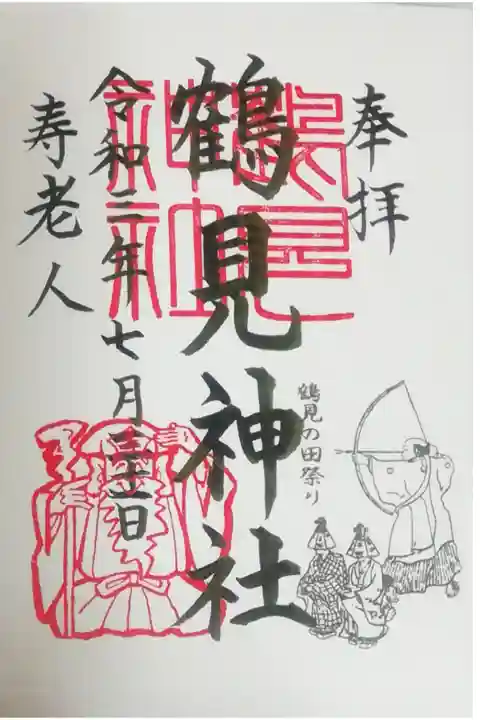 奉拝
鶴見の田祭り
鶴見神社
令和三年七月三十一日
寿老人
鶴見神社